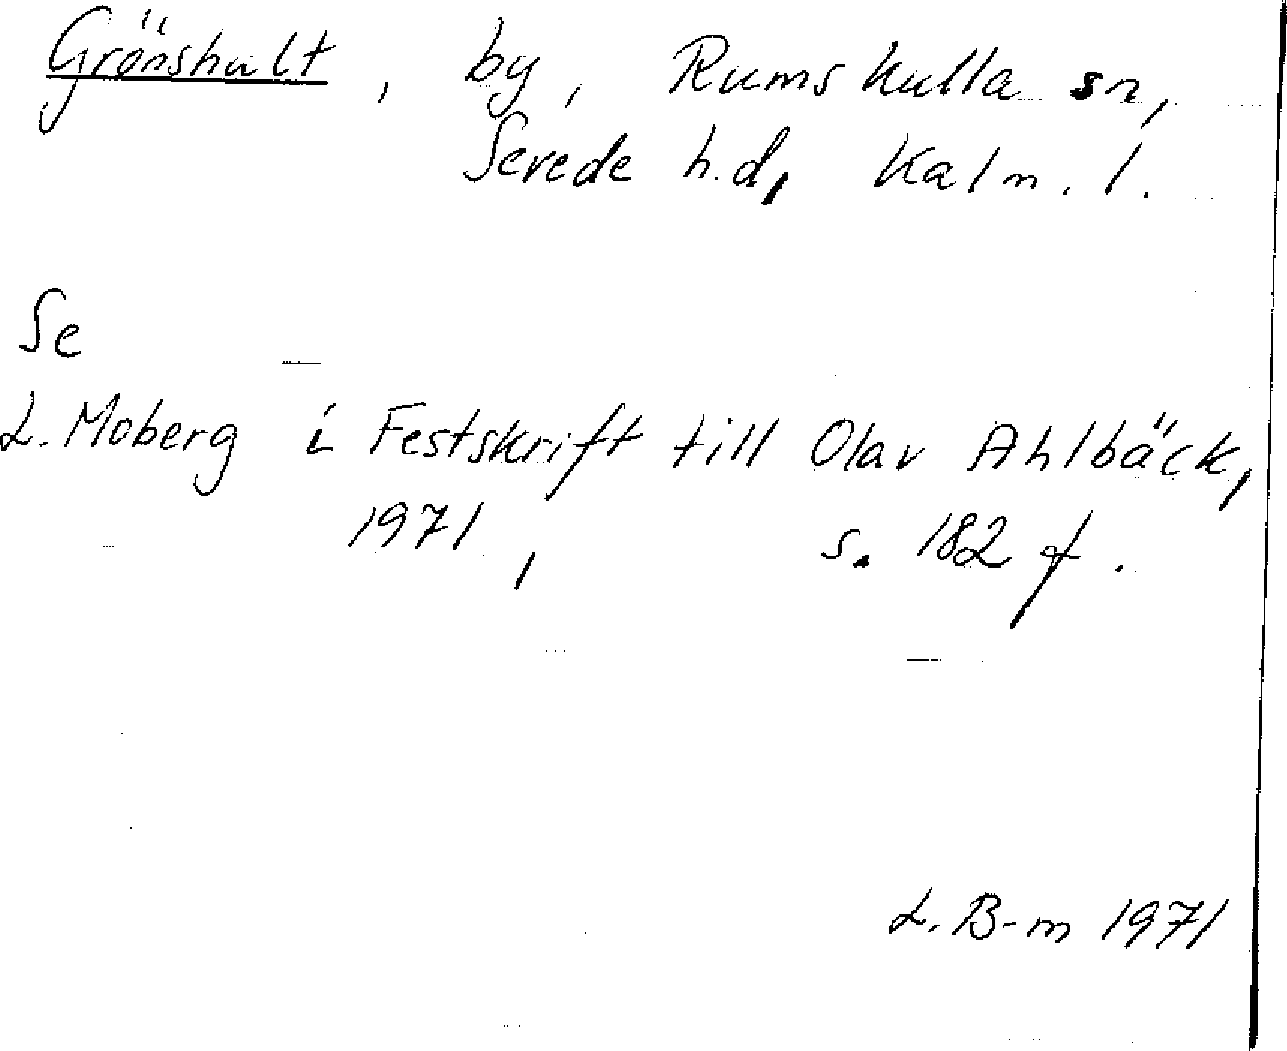 Grönshult, by, Rumskulla sn,
Serede h.d, Kalm. l.
Se
L. Moberg i Festskrift till Olav Ahlbäck,
1971, s. 182 f.
L. B-m 1971